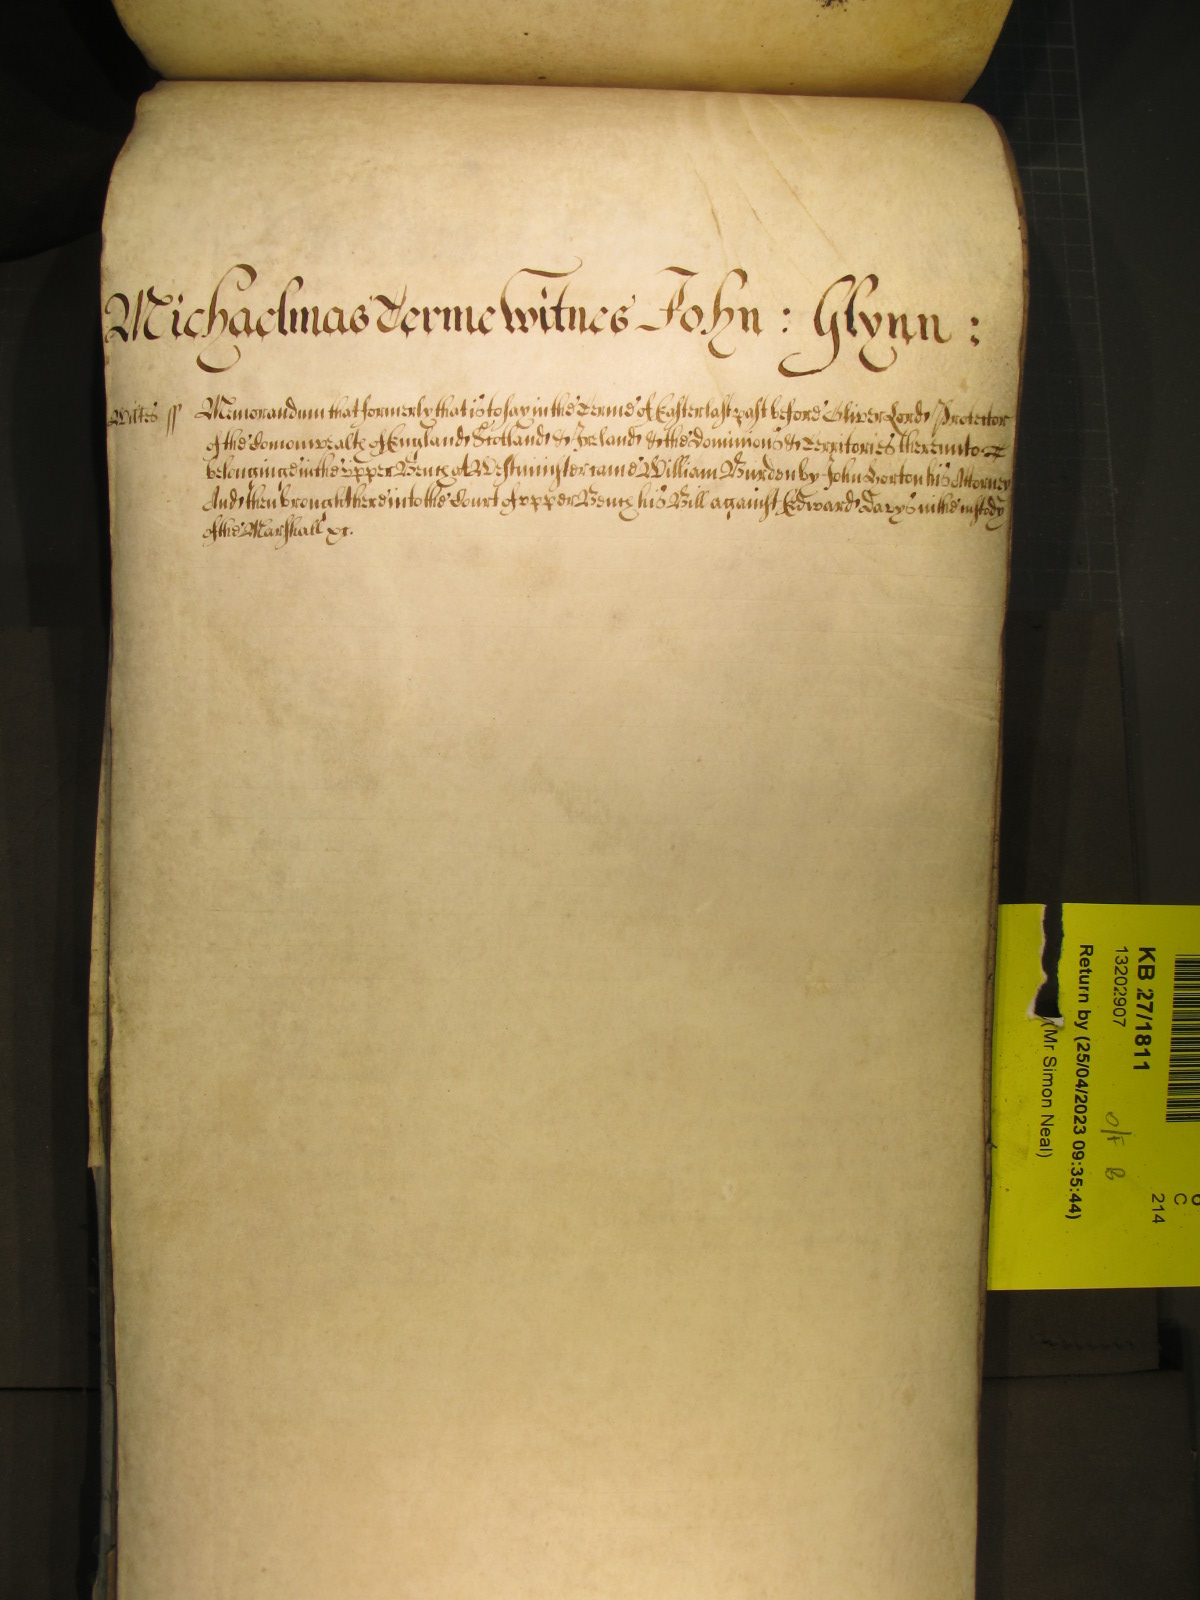 Michaelmas Terme Witnes John : Glynn :
Wiltes ss Memorandum that formerly that is to say in the Terme of Easter last past before Oliver Lord Protector
of the Comonwealth of England Scotland & Ireland & the dominions & Territories thereunto
belonginge in the vpper Bench at Westminster came William Burden by John Gorton his Attorney
And then brought here into the Court of vpper Bench his Bill against Edward Davys in the custody
of the Marshall &c.
KB 27/1811
13202907
Return by (25/04/2023 09:35:44)
(Mr Simon Neal)
O/F B
6
C
214